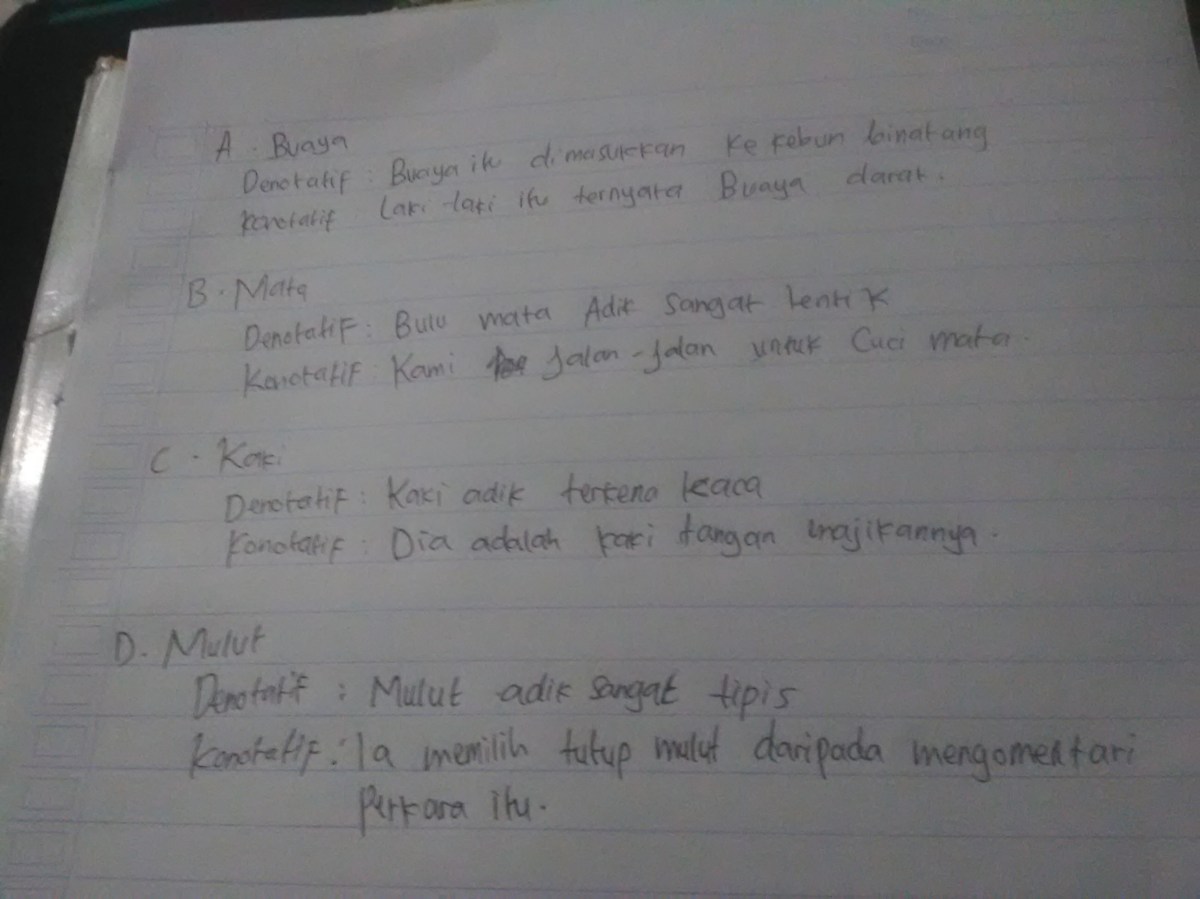 A. Buaya
Denotatif : Buaya itu dimasukkan ke kebun binatang
Konotatif : Laki-laki itu ternyata Buaya darat.
B. Mata
Denotatif : Bulu mata Adik sangat lentik
Konotatif : Kami Jalan-Jalan untuk Cuci mata.
C. Kaki
Denotatif : Kaki adik terkena kaca
Konotatif : Dia adalah kaki tangan majikannya.
D. Mulut
Denotatif : Mulut adik sangat tipis
Konotatif : Ia memilih tutup mulut daripada mengomentari
Perkara itu.